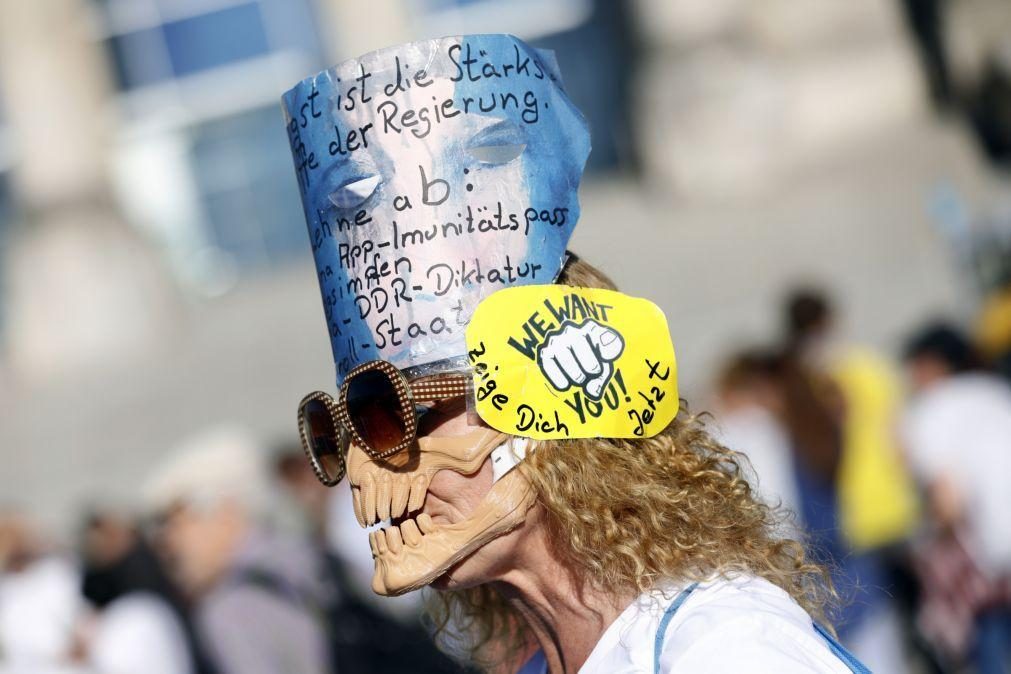 ist die Stärks
der Regierung.
ab:
App-Imunitätspass
DDR-Diktatur
-Staat
WE WANT
YOU!
zeige Dich Jetzt